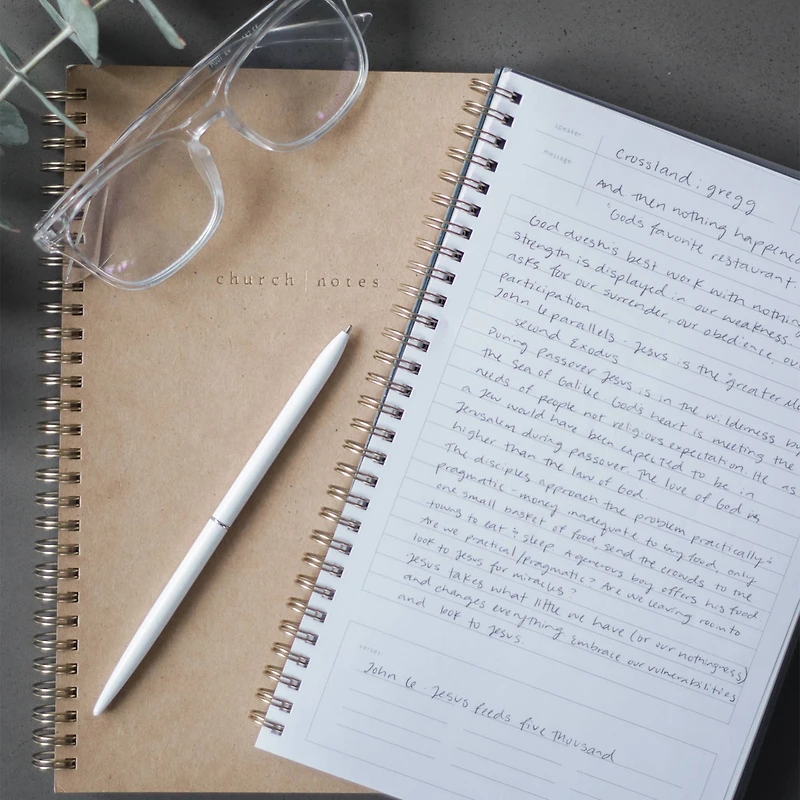 church | notes
speaker
Crossland; gregg
message
And then nothing happened
"Gods favorite restaurant.
God doesn's best work with nothing
strength is displayed in our weakness
asks for our surrender, our obedience, our
participation
John 6 parallels - Jesus is the "greater
second Exodus
During Passover Jesus is in the wilderness by
the sea of Galilee. God's heart is meeting the
needs of people not religious expectation. He as
a Jew would have been expected to be in
Jerusalem during passover. The love of God is
higher than the law of God.
The disciples approach the problem practically &
pragmatic - money inadequate to buy food, only
one small basket of food, send the crowds to the
towns to eat & sleep. A generous boy offers his food.
Are we practical/pragmatic? Are we leaving room to
look to Jesus for miracles?
Jesus takes what little we have (or our nothingness)
and changes everything. Embrace our vulnerabilities
and look to Jesus.
verses
John 6 - Jesus feeds five thousand